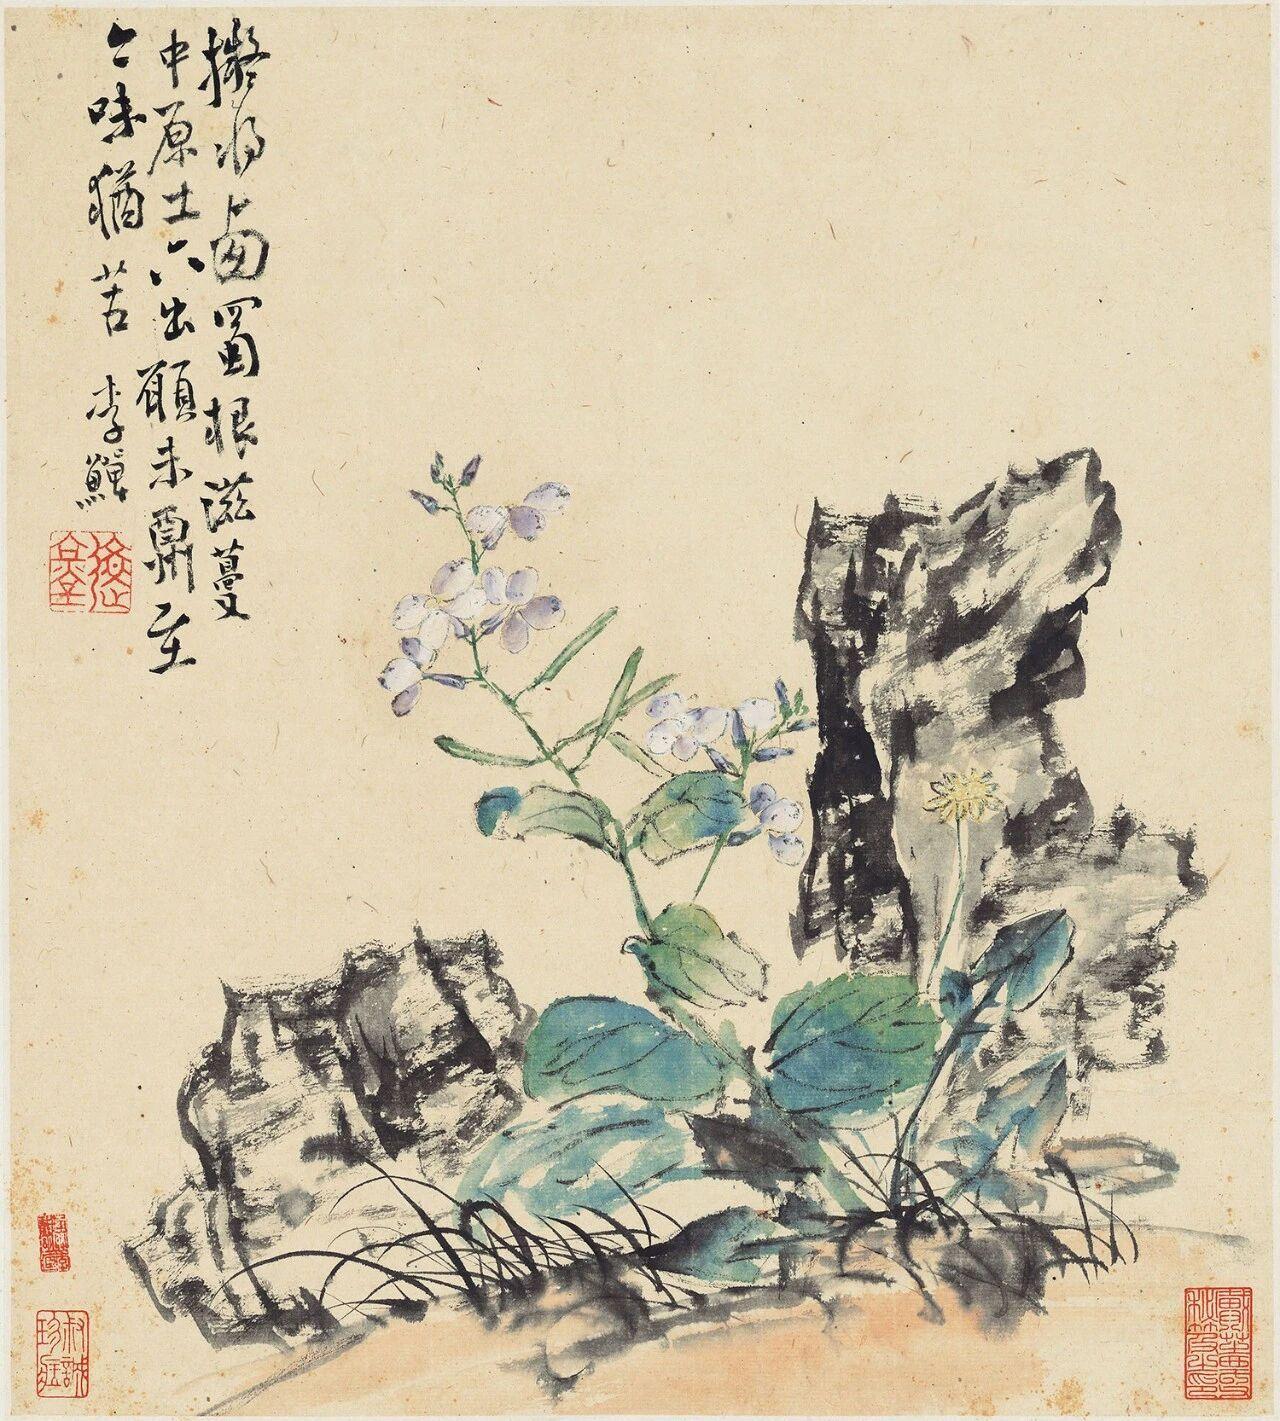 擬將西蜀根滋蔓
中原土六出願未酬至
今味猶苦 李鱓